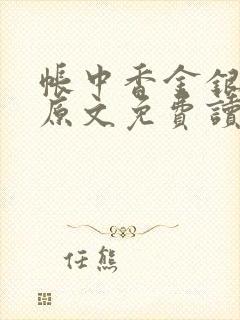 帳中香金銀
原文免費讀
任熊